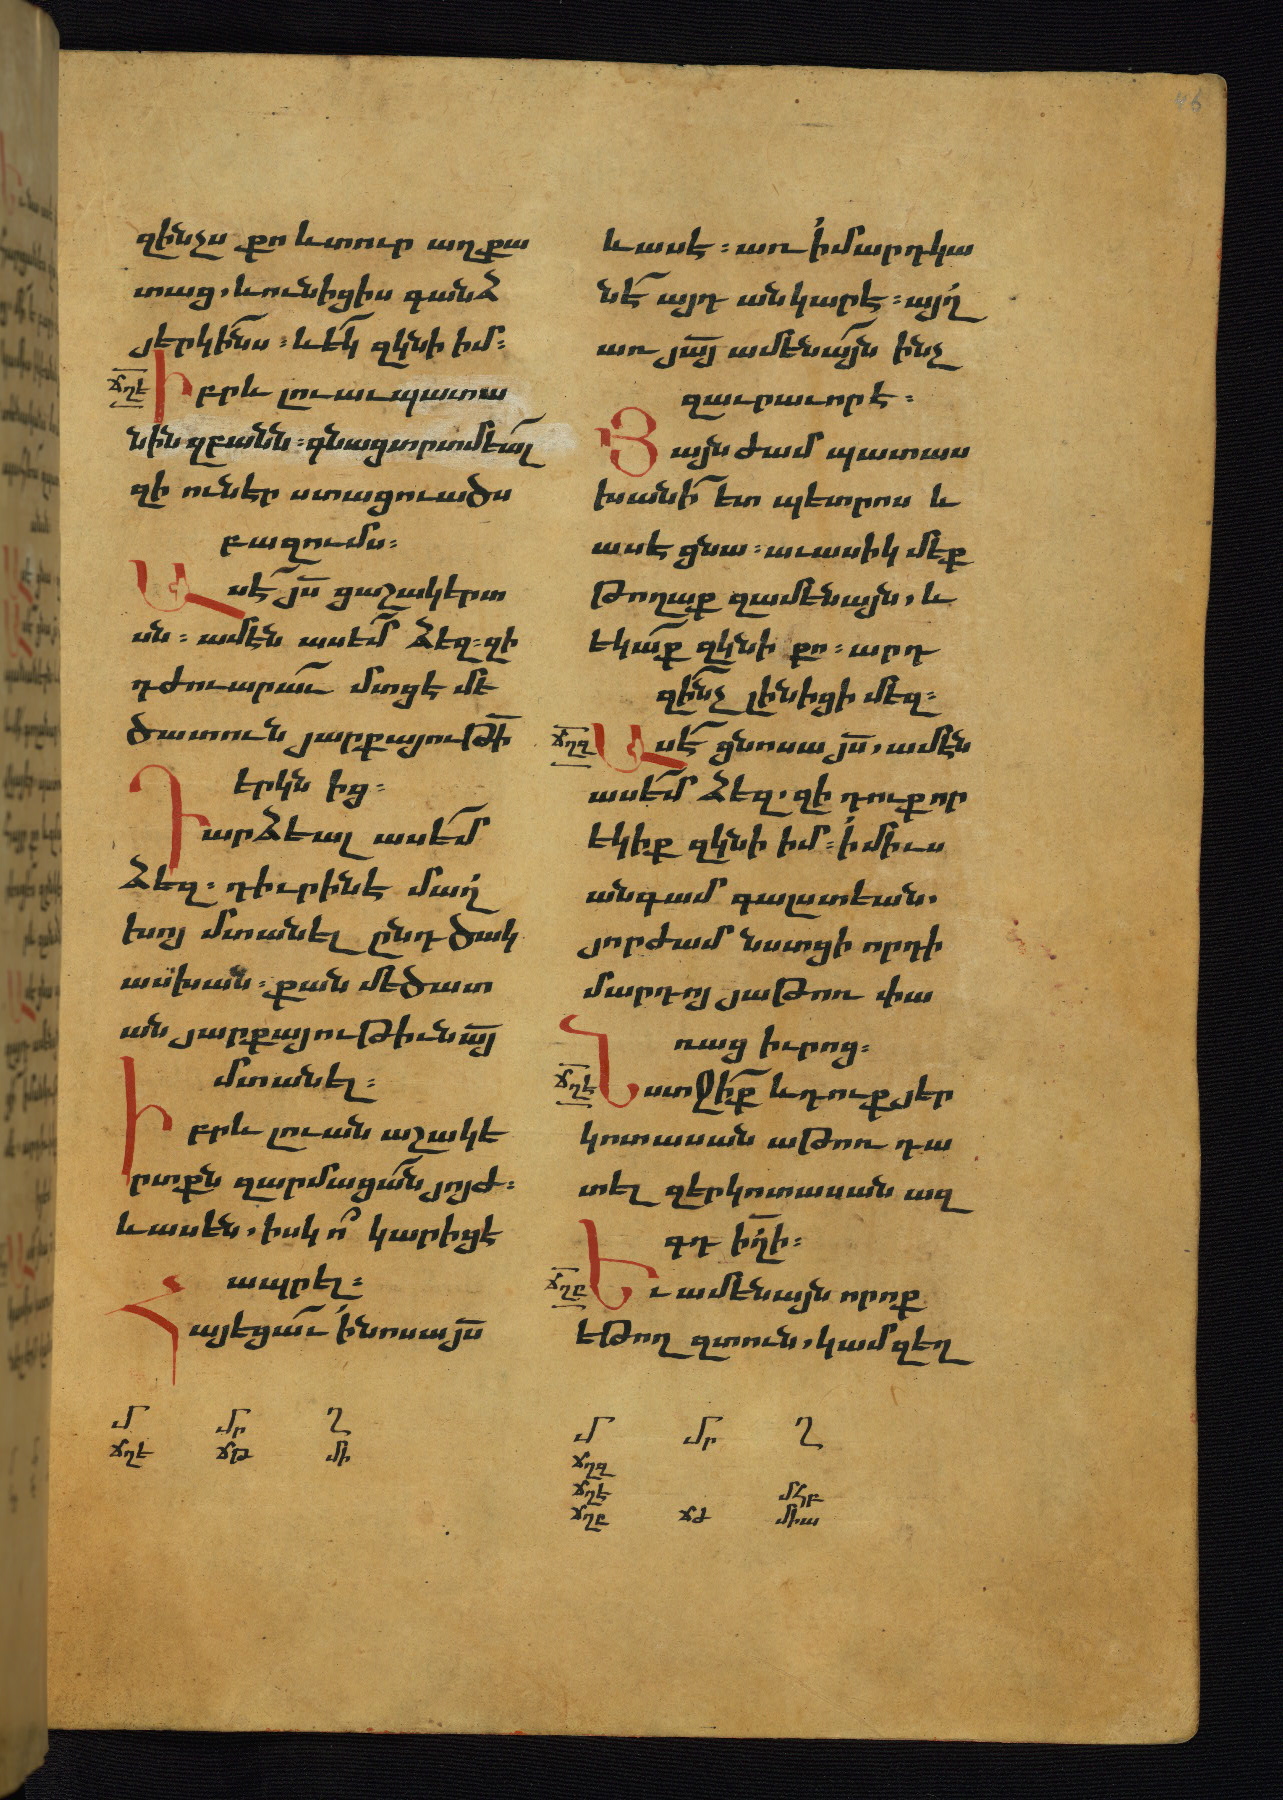 զինչս քո և տուր աղքա
տաց, և ունիցիս գանձ
յերկինս։ և եկ զկնի իմ։
ճղէ Իբրև լուաւ պատա
նին զբանն։ գնաց տրտմեալ
զի ունէր ստացուածս
բազումս։
Ասէ յս ցաշակերտ
սն։ ամէն ասեմ ձեզ։ զի
դժուարաւ մտցէ մե
ծատուն յարքայութի
երկն ից։
Դարձեալ ասեմ
ձեզ։ դիւրին է մաղ
խոյ մտանել ընդ ծակ
ասխան։ քան մեծատ
ան յարքայութիւն այ
մտանել։
Իբրև լուան աշակե
րտքն զարմացան յոյժ։
և ասեն, իսկ ո՞ կարիցէ
ապրել։
Հայեցաւ ի նոսա յս
և ասէ։ առ ի մարդկա
նէ այդ անկար է։ այղ
առ յայ ամենայն ինչ
զաւրաւոր է։
Յայնժամ պատաս
խանի ետ պետրոս և
ասէ ցնա։ աւասիկ մեք
թողաք զամենայն, և
եկաք զկնի քո։ արդ
զինչ լինիցի մեզ։
ճղզ Ասէ ցնոսա յս, ամէն
ասեմ ձեզ, զի դուք որ
եկիք զկնի իմ։ ի միւս
անգամ գալստեան,
յորժամ նստցի որդի
մարդոյ յաթոռ փա
ռաց իւրոց։
ճղէ Նստջիք և դուք յեր
կոտասան աթոռ դա
տել զերկոտասան ազ
գդ իղի։
ճղը Եւ ամենայն որ ոք
եթող զտուն, կամ զեղ
մ մր ղ
ճղէ ճթ մի
մ մր ղ
ճղզ
ճղէ մհբ
ճղը ճժ միա